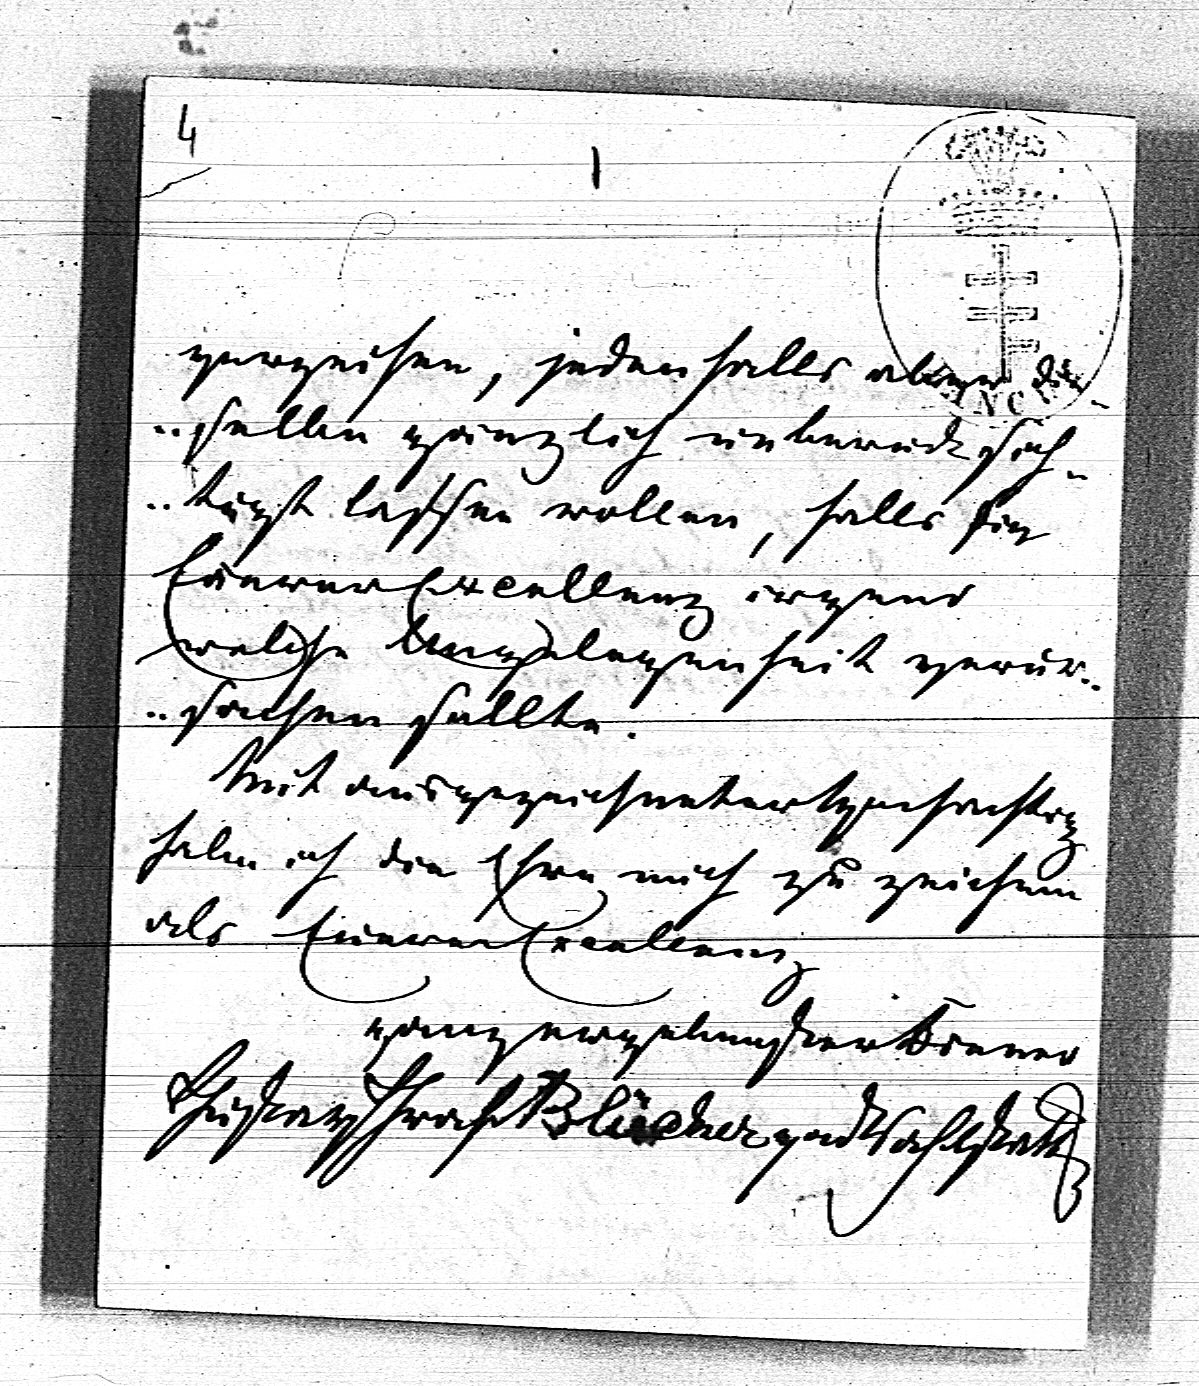 4
1
verzeihen, jedenfalls aber die-
..selben gänzlich unberücksich-
..tigt lassen wollen, falls sie
Euerer Excellenz irgend
welche Ungelegenheit verur..
..sachen sollte.
Mit ausgezeichneter Hochachtung
habe ich die Ehre mich zu zeichnen
als Euerer Excellenz
ganz ergebenster Diener
Gustav Graf Blücher von Wahlstatt